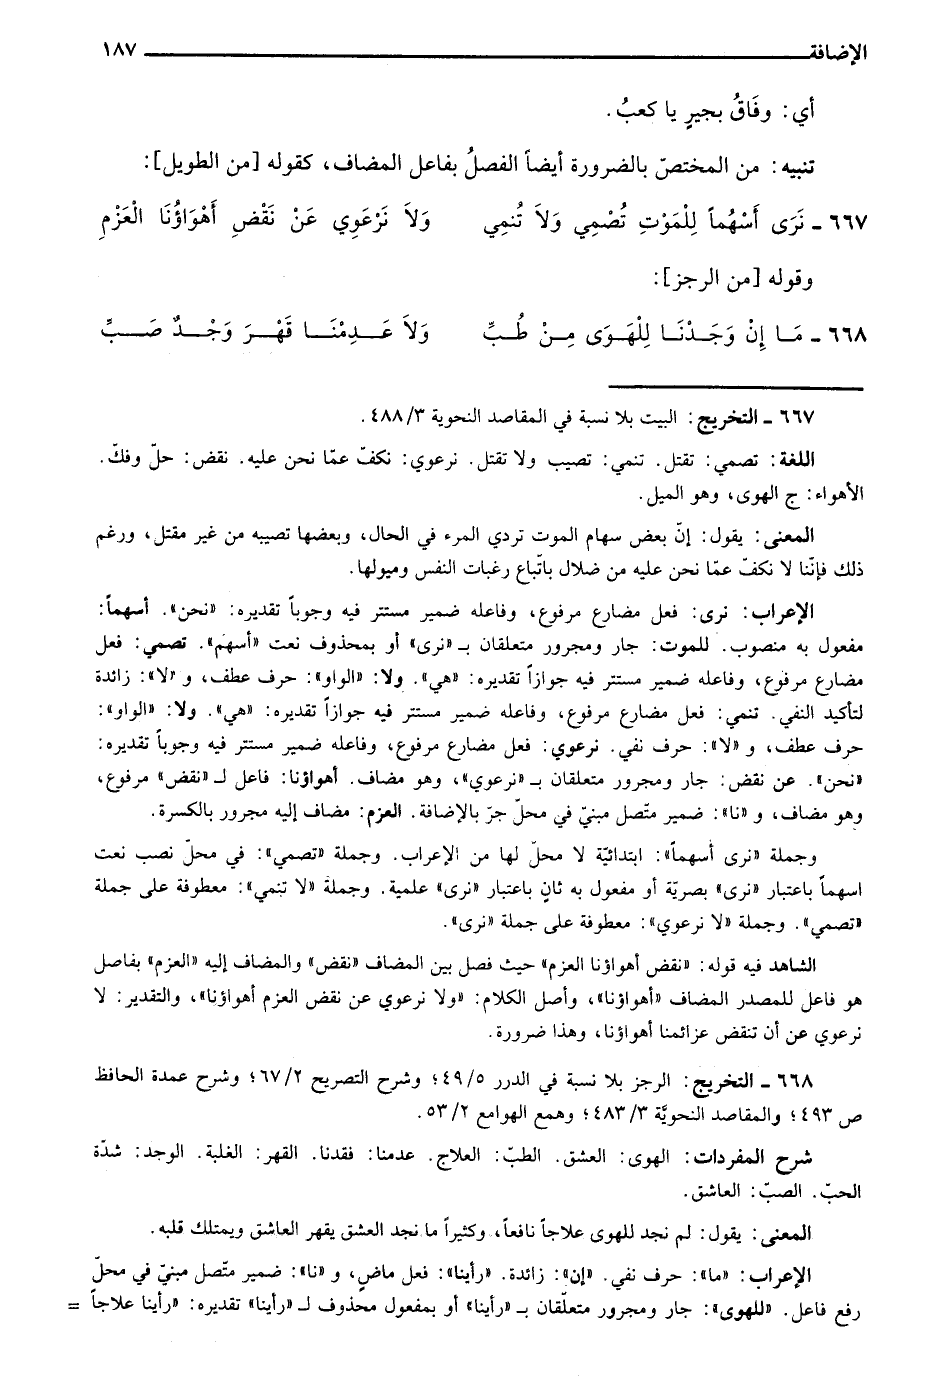 الإضافة ١٨٧
أي: وفَاقُ بجيرٍ يا كعبُ.
تنبيه: من المختصّ بالضرورة أيضاً الفصلُ بفاعل المضاف، كقوله [من الطويل]:
٦٦٧ ـ نَرَى أَسْهُماً لِلْمَوْتِ تُصْمِي وَلاَ تُنمِي وَلاَ نَرْعَوِي عَنْ نَقْضِ أَهْوَاؤُنَا الْعَزْمِ
وقوله [من الرجز]:
٦٦٨ ـ مَا إِنْ وَجَدْنَا لِلْهَوَى مِنْ طُبِّ وَلاَ عَدِمْنَا قَهْرَ وَجْدٌ صَبِّ
٦٦٧ ـ التخريج: البيت بلا نسبة في المقاصد النحوية ٤٨٨/٣.
اللغة: تصمي: تقتل. تنمي: تصيب ولا تقتل. نرعوي: نكفّ عمّا نحن عليه. نقض: حلّ وفكّ.
الأهواء: ج الهوى، وهو الميل.
المعنى: يقول: إنّ بعض سهام الموت تردي المرء في الحال، وبعضها تصيبه من غير مقتل، ورغم
ذلك فإنّنا لا نكفّ عمّا نحن عليه من ضلال باتّباع رغبات النفس وميولها.
الإعراب: نرى: فعل مضارع مرفوع، وفاعله ضمير مستتر فيه وجوباً تقديره: «نحن». أسهماً:
مفعول به منصوب. للموت: جار ومجرور متعلقان بـ «نرى» أو بمحذوف نعت «أسهم». تصمي: فعل
مضارع مرفوع، وفاعله ضمير مستتر فيه جوازاً تقديره: «هي». ولا: «الواو»: حرف عطف، و «لا»: زائدة
لتأكيد النفي. تنمي: فعل مضارع مرفوع، وفاعله ضمير مستتر فيه جوازاً تقديره: «هي». ولا: «الواو»:
حرف عطف، و «لا»: حرف نفي. نرعوي: فعل مضارع مرفوع، وفاعله ضمير مستتر فيه وجوباً تقديره:
«نحن». عن نقض: جار ومجرور متعلقان بـ «نرعوي»، وهو مضاف. أهواؤنا: فاعل لـ «نقض» مرفوع،
وهو مضاف، و «نا»: ضمير متّصل مبنيّ في محلّ جرّ بالإضافة. العزم: مضاف إليه مجرور بالكسرة.
وجملة «نرى أسهماً»: ابتدائيّة لا محلّ لها من الإعراب. وجملة «تصمي»: في محلّ نصب نعت
اسهماً باعتبار «نرى» بصريّة أو مفعول به ثانٍ باعتبار «نرى» علمية. وجملة «لا تنمي»: معطوفة على جملة
«تصمي». وجملة «لا نرعوي»: معطوفة على جملة «نرى».
الشاهد فيه قوله: «نقض أهواؤنا العزم» حيث فصل بين المضاف «نقض» والمضاف إليه «العزم» بفاصل
هو فاعل للمصدر المضاف «أهواؤنا»، وأصل الكلام: «ولا نرعوي عن نقض العزم أهواؤنا»، والتقدير: لا
نرعوي عن أن تنقض عزائمنا أهواؤنا، وهذا ضرورة.
٦٦٨ ـ التخريج: الرجز بلا نسبة في الدرر ٤٩/٥؛ وشرح التصريح ٦٧/٢؛ وشرح عمدة الحافظ
ص ٤٩٣؛ والمقاصد النحويَّة ٤٨٣/٣؛ وهمع الهوامع ٥٣/٢.
شرح المفردات: الهوى: العشق. الطبّ: العلاج. عدمنا: فقدنا. القهر: الغلبة. الوجد: شدّة
الحبّ. الصبّ: العاشق.
المعنى: يقول: لم نجد للهوى علاجاً نافعاً، وكثيراً ما نجد العشق يقهر العاشق ويمتلك قلبه.
الإعراب: «ما»: حرف نفي. «إن»: زائدة. «رأينا»: فعل ماضٍ، و «نا»: ضمير متّصل مبنيّ في محلّ
رفع فاعل. «للهوى»: جار ومجرور متعلّقان بـ «رأينا» أو بمفعول محذوف لـ «رأينا» تقديره: «رأينا علاجاً =